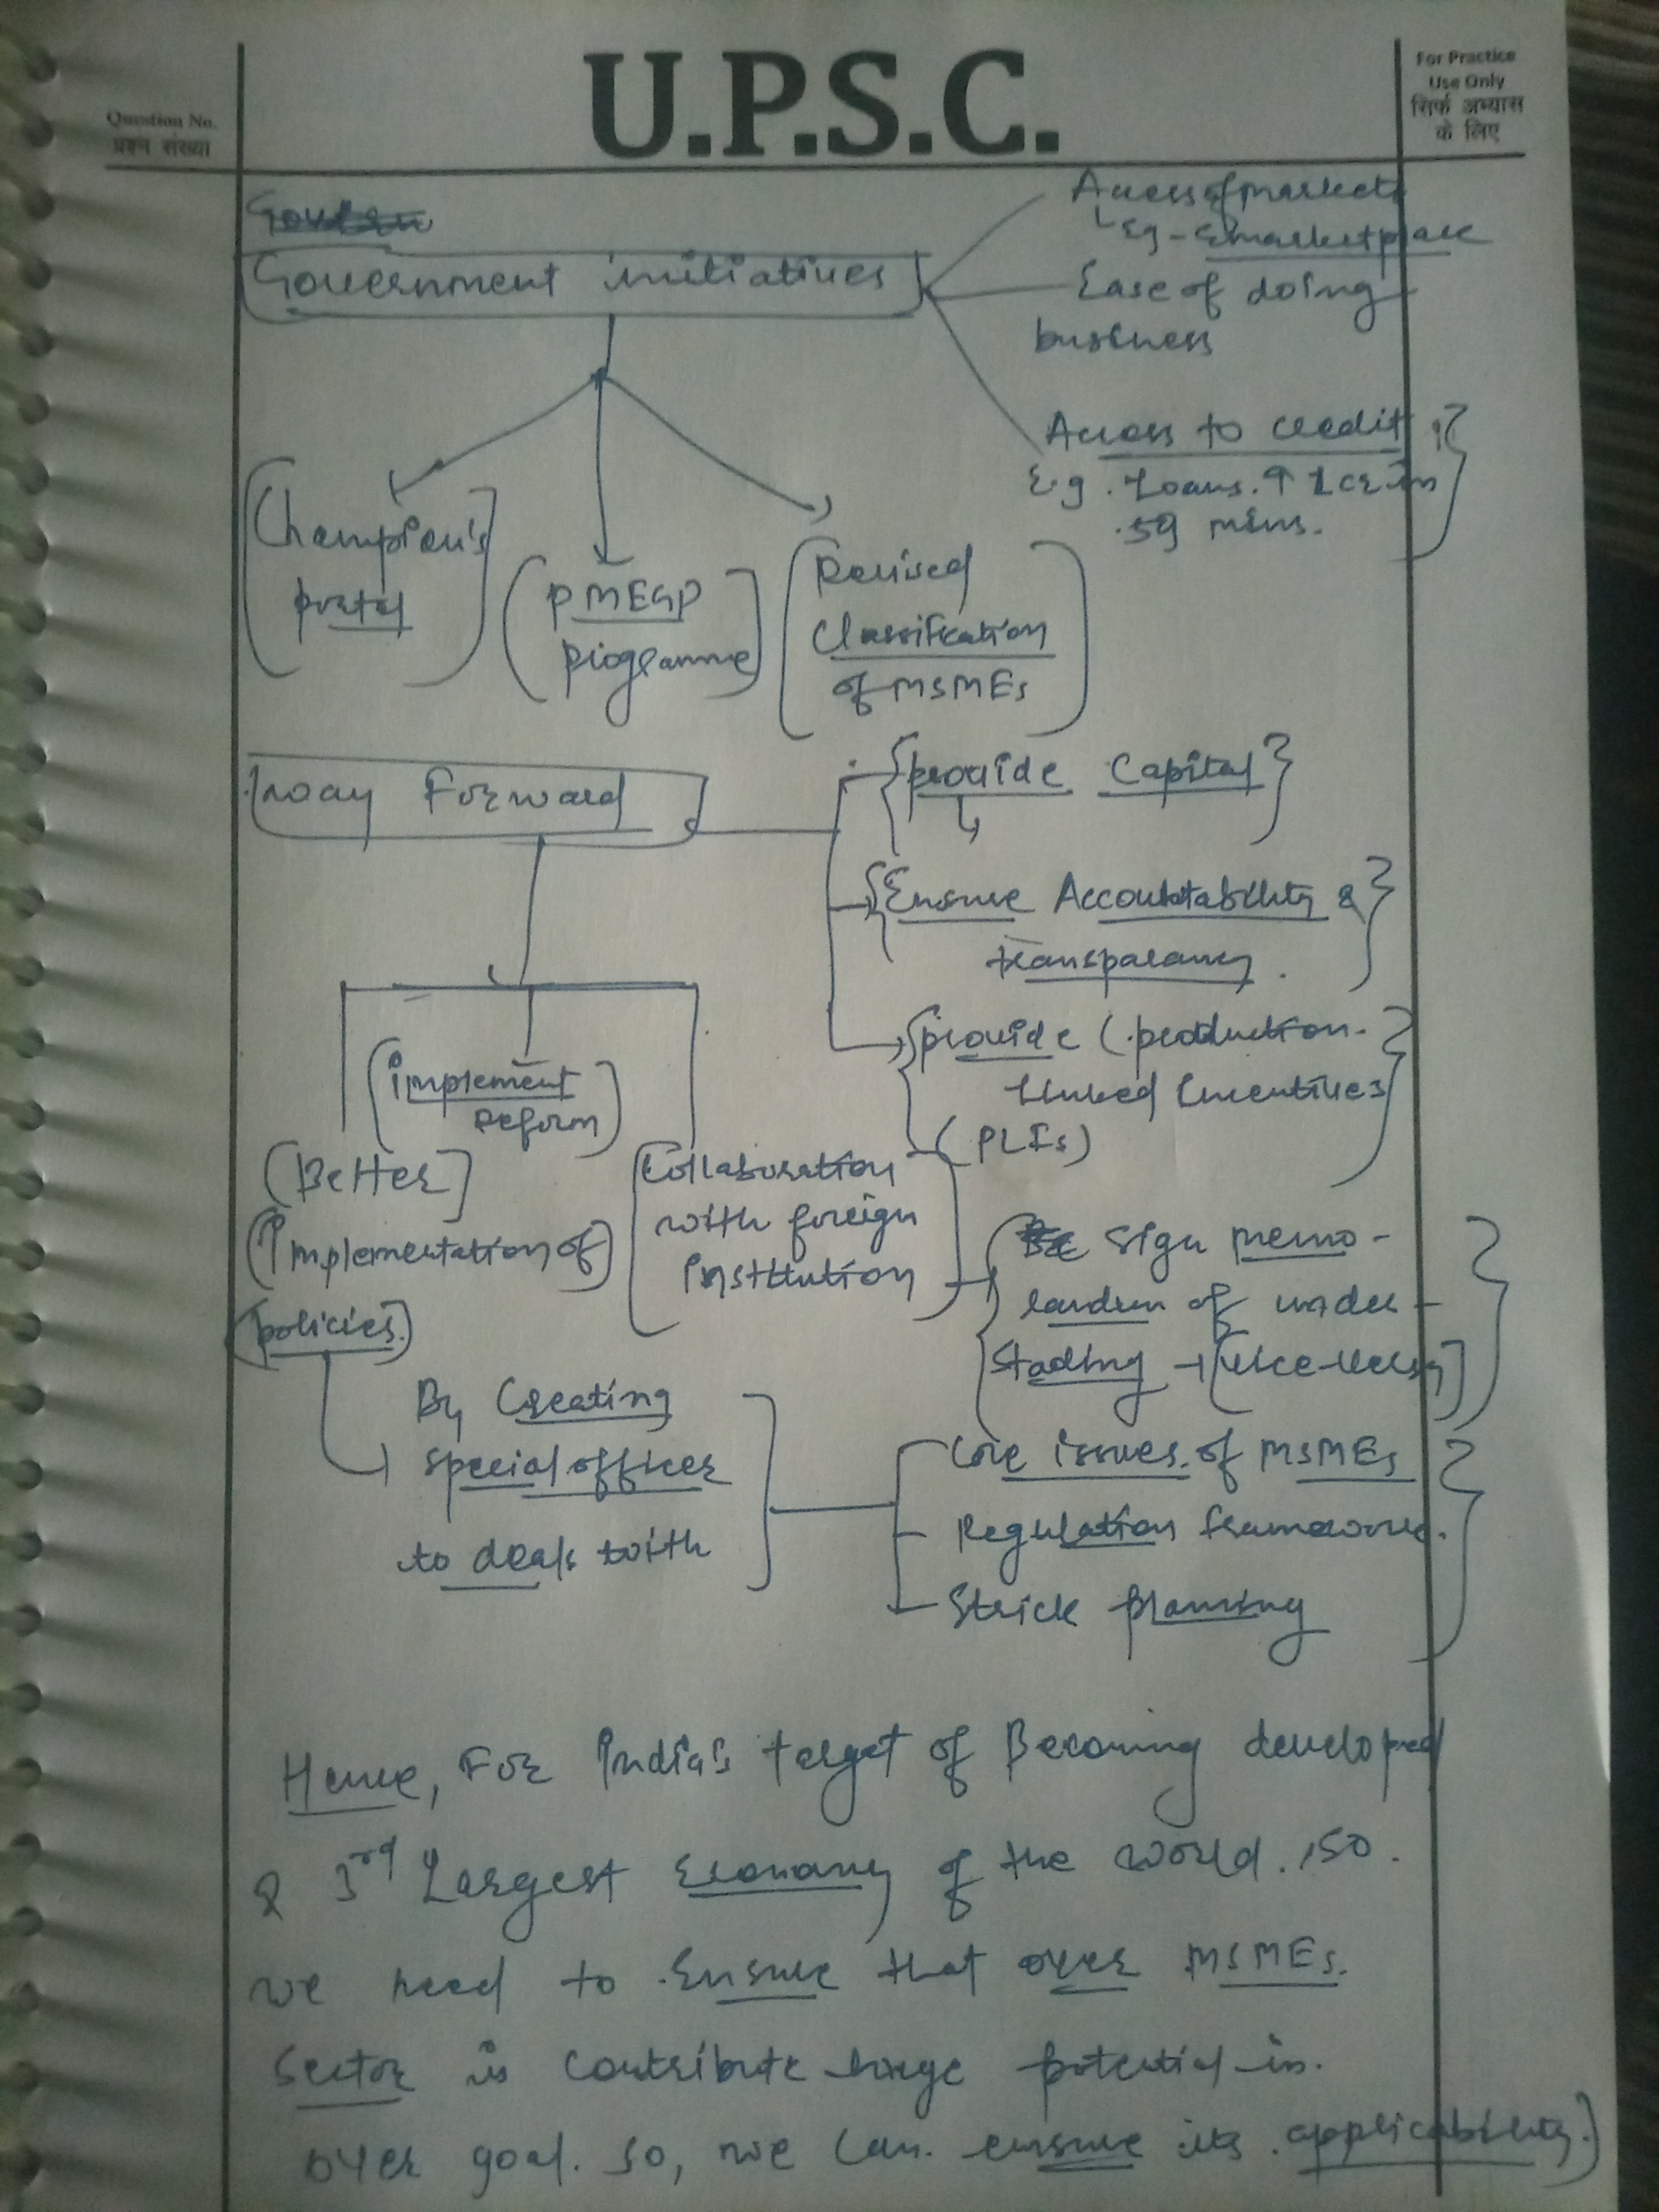 Question No.
प्रश्न संख्या
U.P.S.C.
For Practice
Use Only
सिर्फ अभ्यास
के लिए
Government initiatives
Access of markets
Eg - emarketplace
Ease of doing
business
Access to credit
E.g. Loans ↑ 1 cr in
59 mins.
Champion's
portal
PMEGP
programme
Revised
Classification
of MSMEs
Way Forward
provide Capital
Ensure Accountability &
transparancy.
provide (production-
linked Incentives
(PLIs)
implement
Reform
(Better]
(Implementation of)
(policies.)
Collaboration
with foreign
institution
Sign memo-
randum of under-
stading → [vice-versa]
By Creating
special officer
to deals with
Core issues of MSMEs
Regulation framework.
Strick planning
Hence, For India's target of Becoming developed
& 3rd Largest Economy of the world. So
we need to Ensure that over MSMEs.
Sector is contribute huge potential in
over goal. So, we can ensure its applicability.